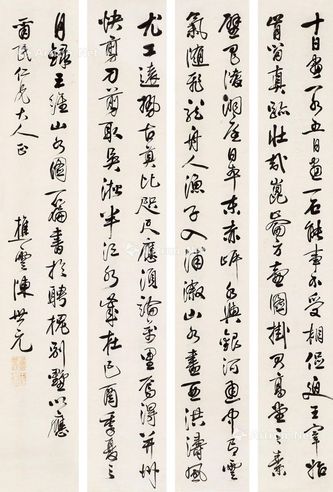 十日畫一水五日畫一石能事不受相促迫王宰始
肯留真跡壯哉崑崙方壺圖掛君高堂之素
壁巴陵洞庭日本東赤岸水與銀河通中有雲
氣随飛龍舟人漁子入浦漵山木盡亞洪濤風
尤工遠勢古莫比咫尺應須論萬里焉得并州
快剪刀剪取吳淞半江水歲在己酉季夏之
月錄王維山水圖一篇書於聘槐別墅以應
民仁兄大人正
樵雲陳世元